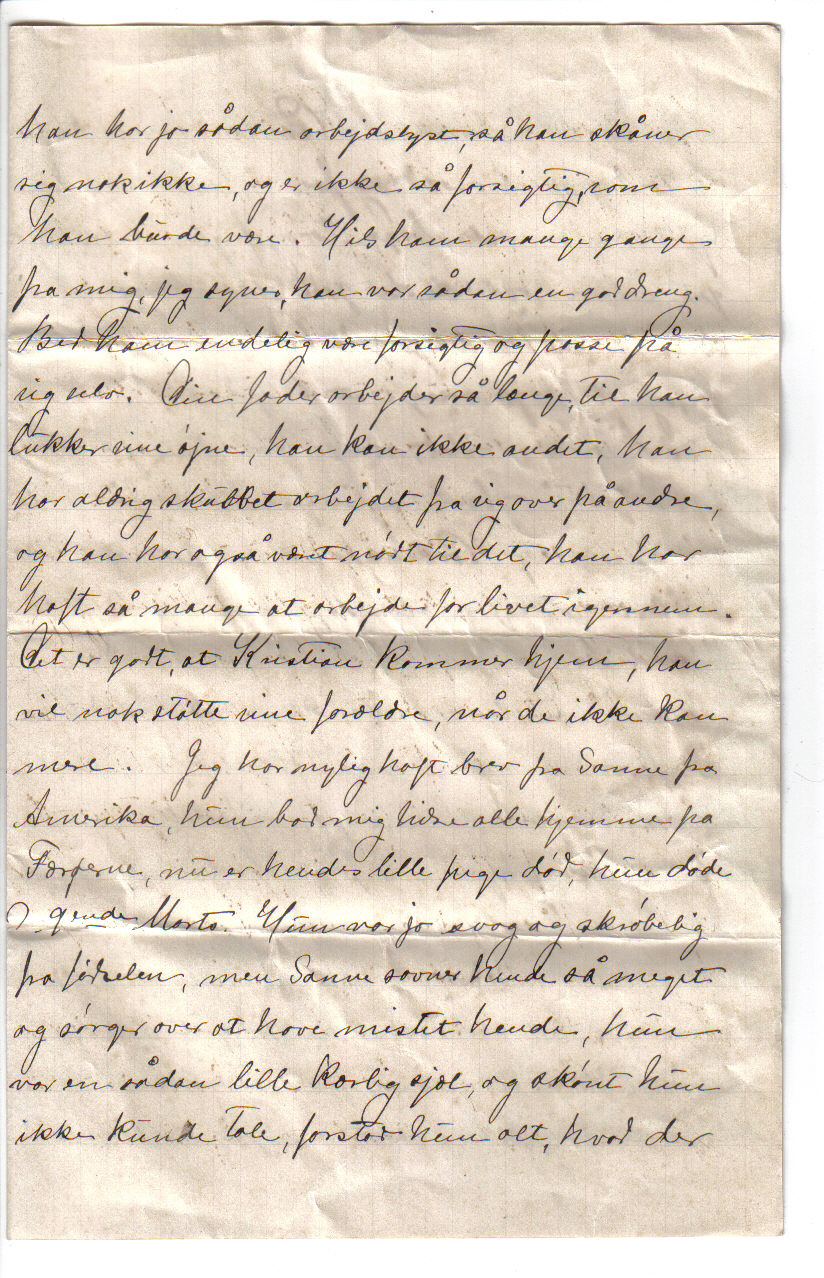 han har jo sådan arbejdslyst, så han skåner
sig nok ikke, og er ikke så forsigtig, som
han burde være. Hils ham mange gange
fra mig, jeg synes, han var sådan en god dreng.
Bed ham endelig være forsigtig og passe på
sig selv. Din fader arbejder så længe, til han
lukker sine øjne, han kan ikke andet, han
har aldrig skubbet arbejdet fra sig over på andre,
og han har også været nødt til det, han har
haft så mange at arbejde for livet igennem.
Det er godt, at Kristian kommer hjem, han
vil nok støtte sine forældre, når de ikke kan
mere. Jeg har nylig haft brev fra Sanne fra
Amerika, hun bad mig hilse alle hjemme på
Færøerne, nu er hendes lille pige død, hun døde
9ende Marts. Hun var jo svag og skrøbelig
fra fødselen, men Sanne savner hende så meget
og sørger over at have mistet hende, hun
var en sådan lille kærlig sjæl, og skønt hun
ikke kunde tale, forstod hun alt, hvad der